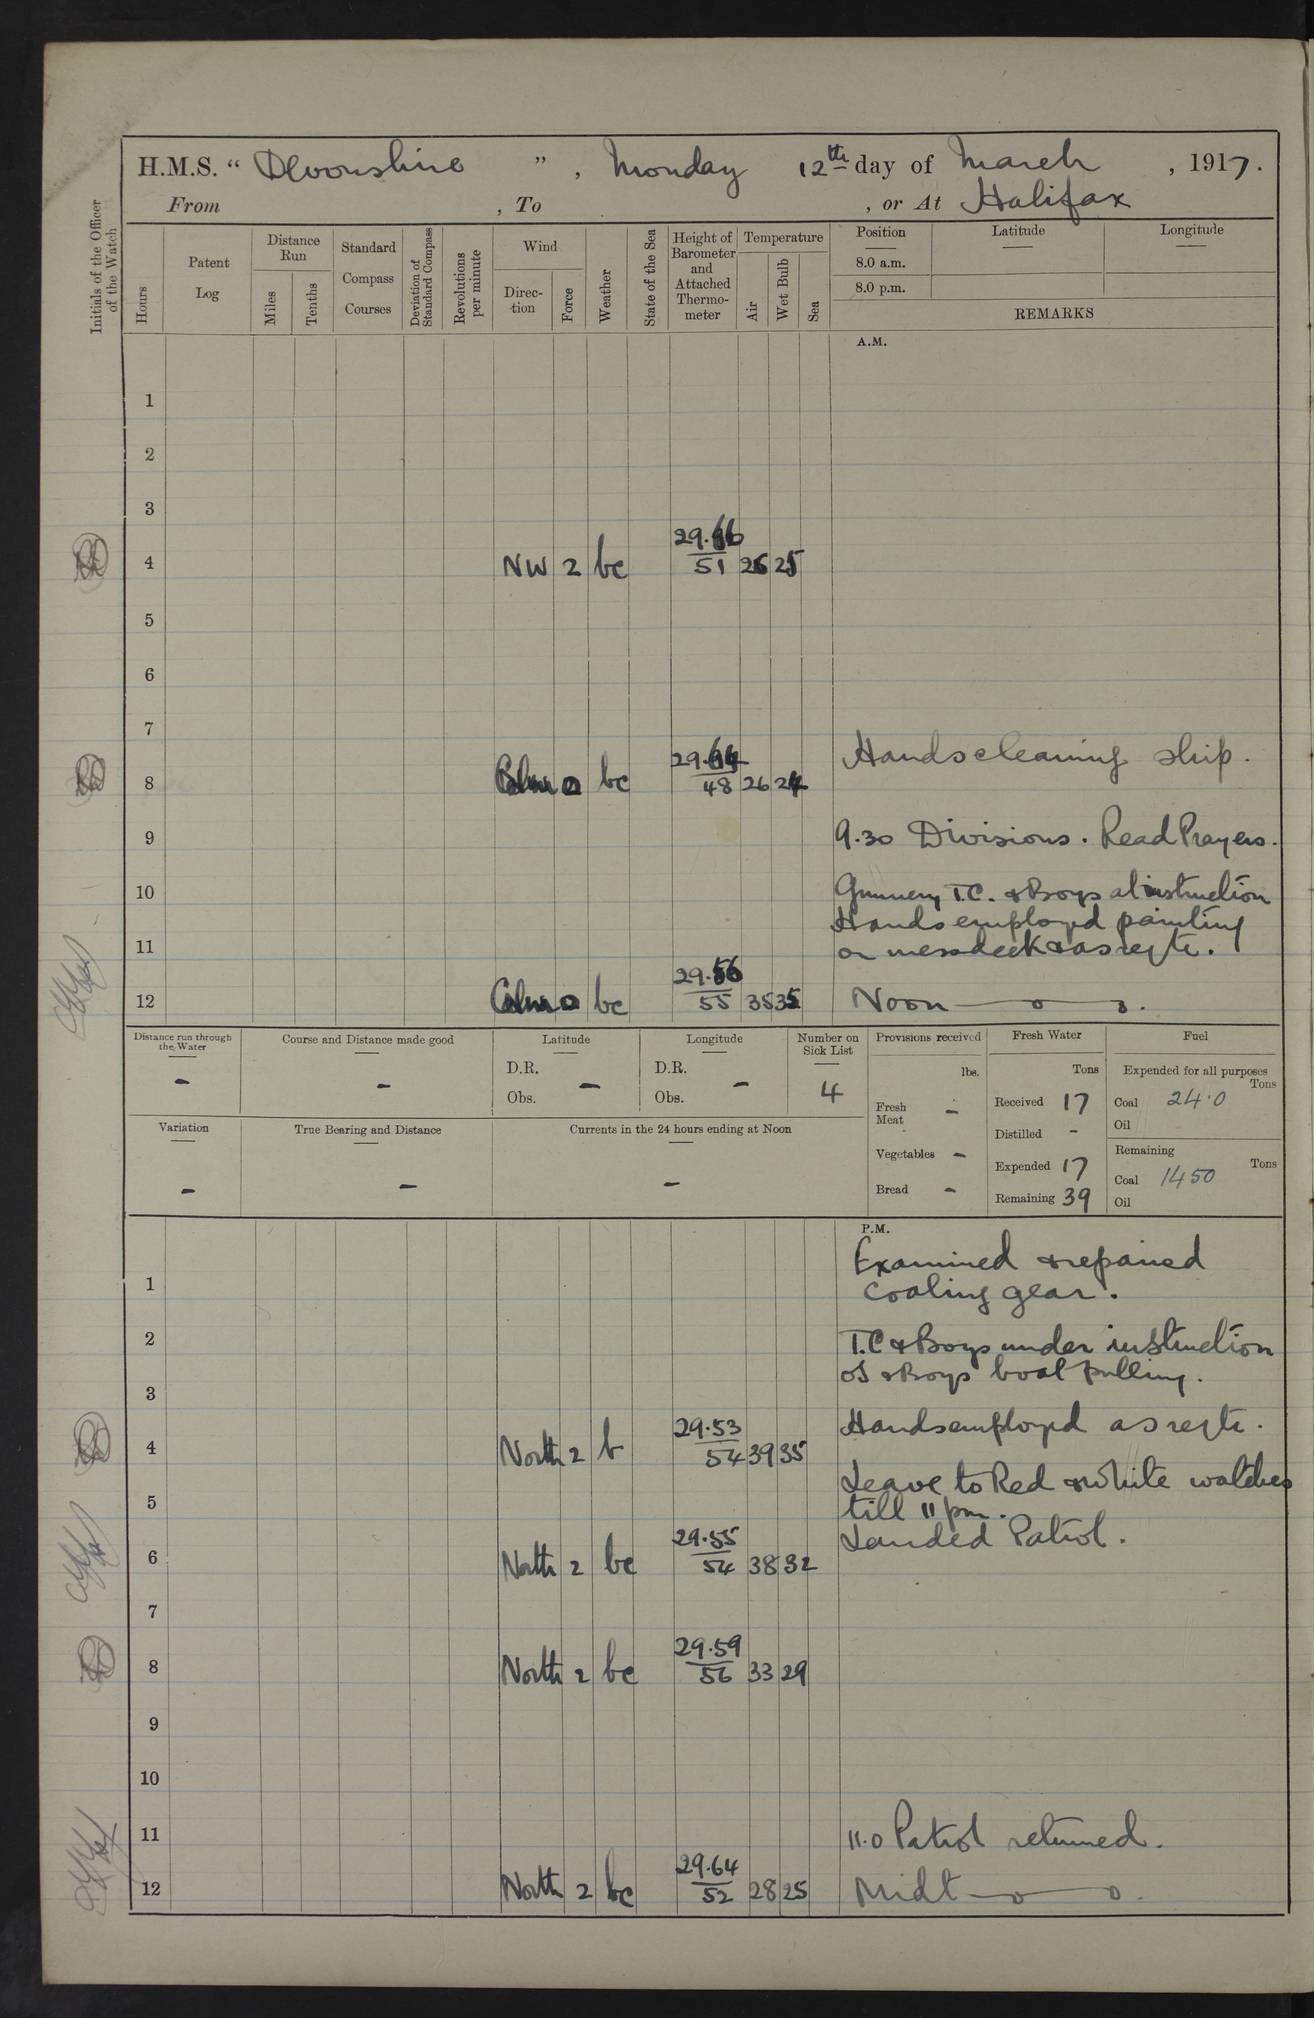 H.M.S. “ Devonshire ” , Monday 12th day of March , 1917.
From , To , or At Halifax
Initials of the Officer of the Watch
Hours
Patent Log
Distance Run
Miles
Tenths
Standard Compass Courses
Deviation of Standard Compass
Revolutions per minute
Wind
Direction
Force
Weather
State of the Sea
Height of Barometer and Attached Thermometer
Temperature
Air
Wet Bulb
Sea
Position
8.0 a.m.
8.0 p.m.
Latitude
Longitude
REMARKS
A.M.
1
2
3
4 NW 2 bc 29.66 51 26 25
5
6
7
Hands cleaning ship.
8 Calm 0 bc 29.64 48 26 24
9 9.30 Divisions. Read Prayers.
10 Gunnery T.C. & Boys at instruction
Hands employd painting
11 on messdeck & as reqte.
12 Calm 0 bc 29.56 55 35 35 Noon
Distance run through the Water
-
Course and Distance made good
-
Latitude
D.R.
Obs. -
Longitude
D.R.
Obs. -
Number on Sick List
4
Provisions received
lbs.
Fresh Meat -
Vegetables -
Bread -
Fresh Water
Tons
Received 17
Distilled -
Expended 17
Remaining 39
Fuel
Expended for all purposes
Tons
Coal 24.0
Oil
Remaining
Tons
Coal 1450
Oil
Variation
-
True Bearing and Distance
-
Currents in the 24 hours ending at Noon
-
P.M.
Examined & repaired
1 coaling gear.
2 T.C & Boys under instruction
OS & Boys boat pulling.
3
Hands employd as reqte.
4 North 2 b 29.53 54 39 35
Leave to Red & White watches
5 till 11 pm.
Landed Patrol.
6 North 2 bc 29.55 54 38 32
7
8 North 2 bc 29.59 56 33 29
9
10
11 11.0 Patrol returned.
12 North 2 bc 29.64 52 28 25 Midt